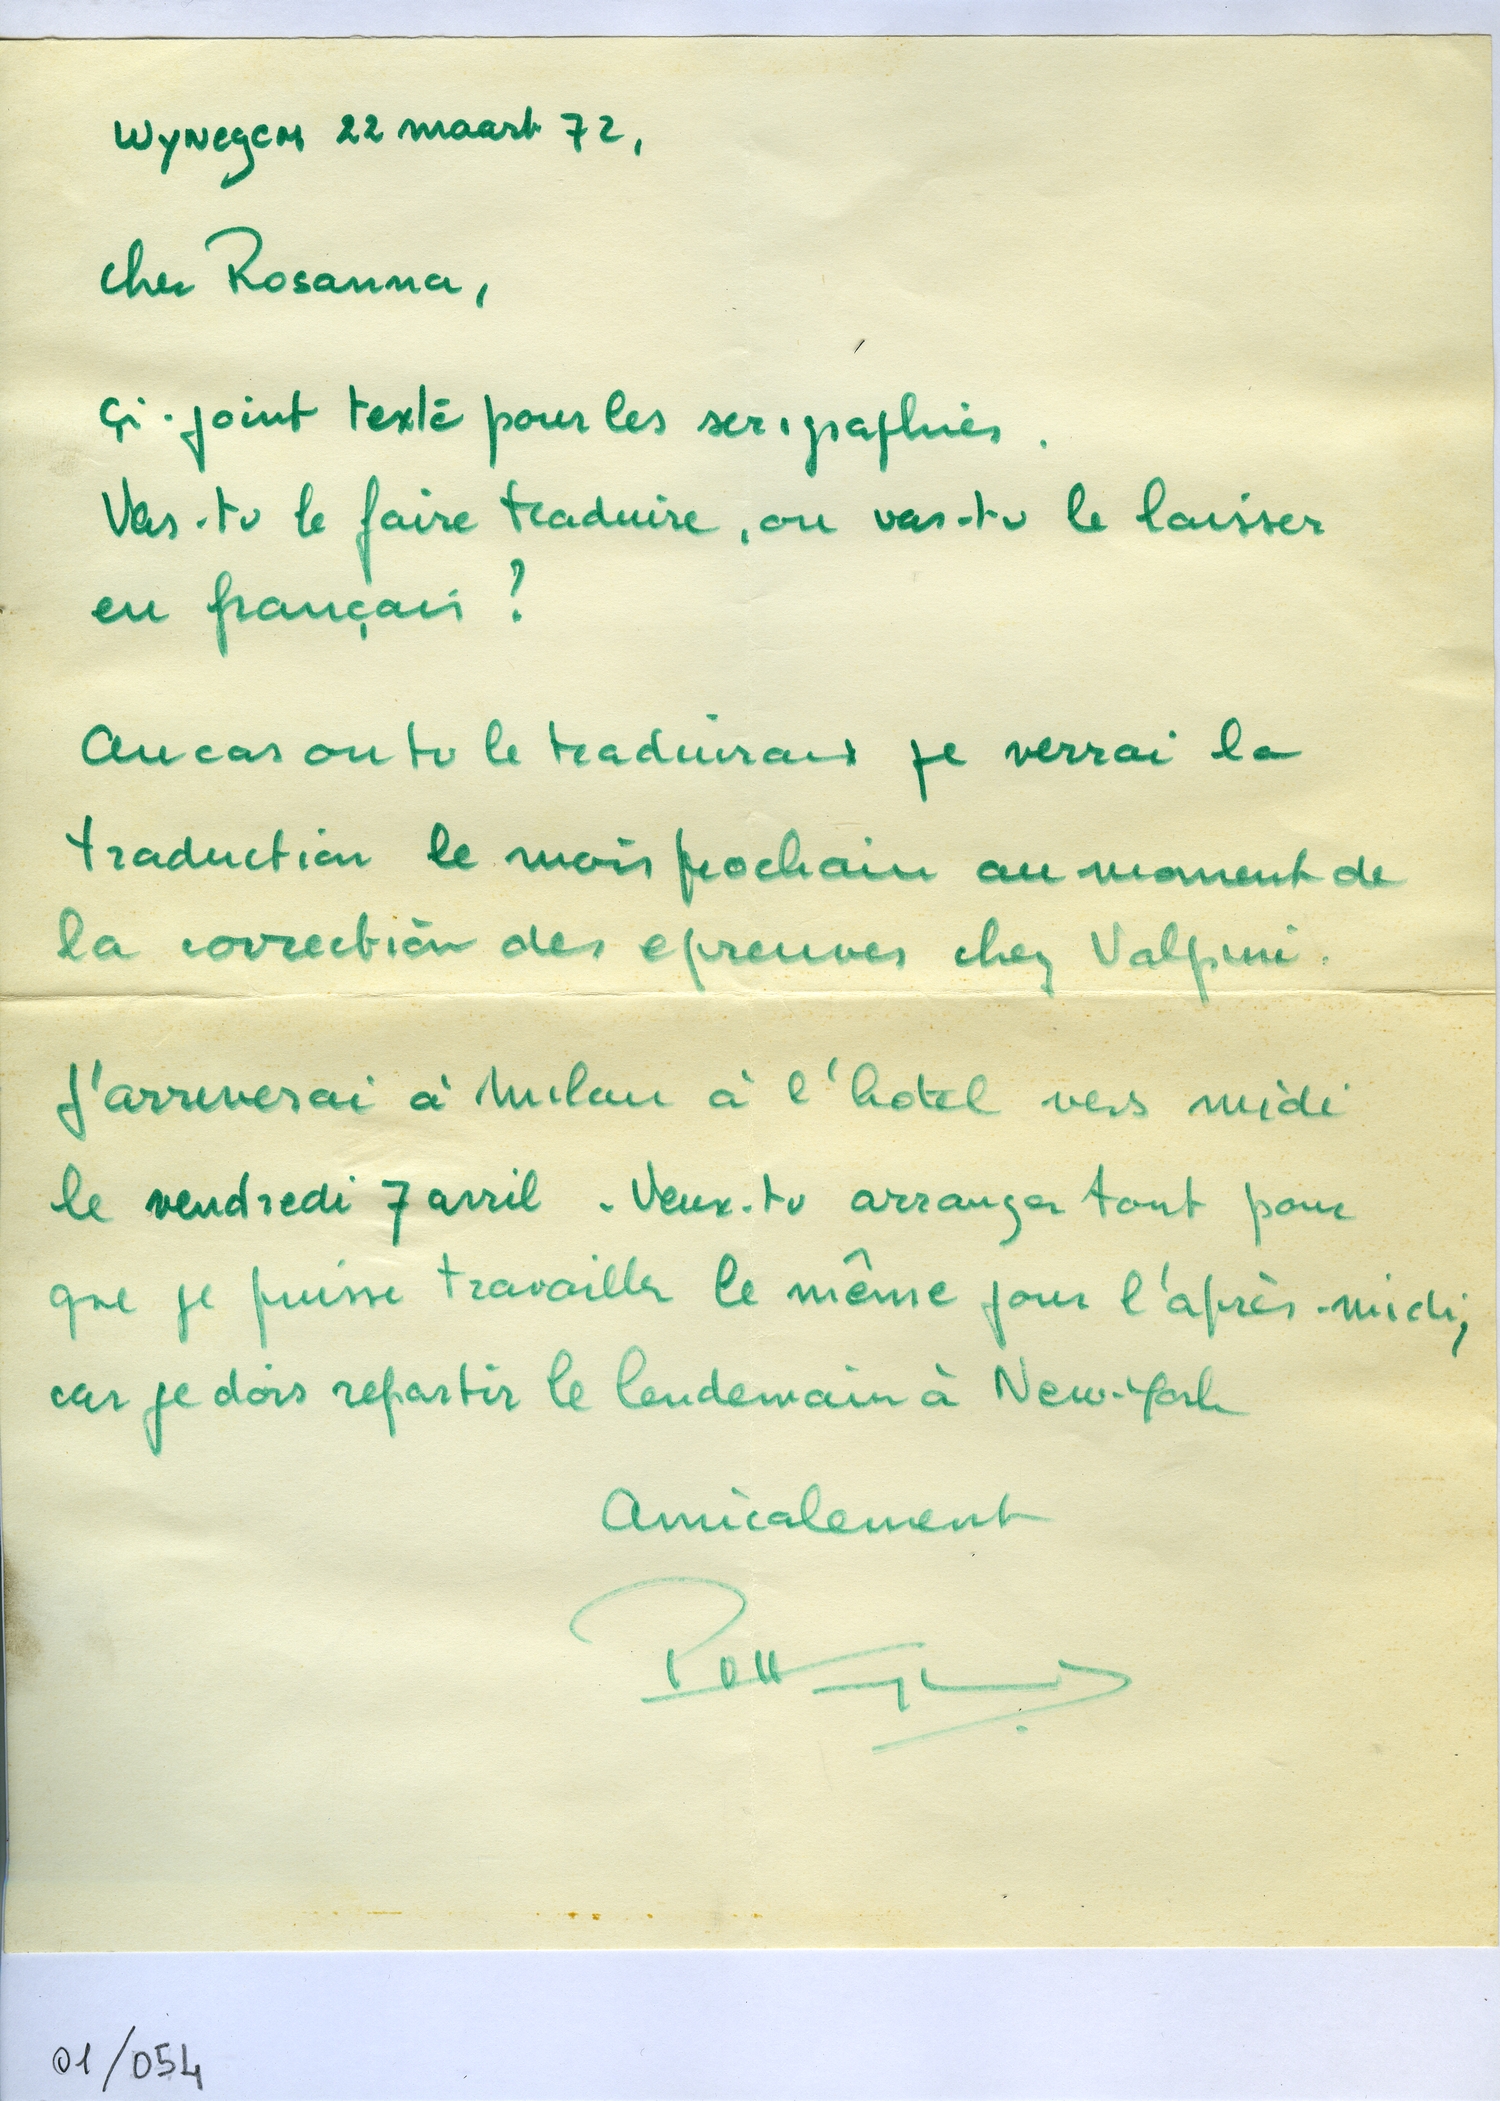 Wynegem 22 maart 72,
Cher Rosanna,
Çi-joint texte pour les serigraphies.
Vas-tu le faire traduire, ou vas-tu le laisser
en français ?
Au cas ou tu le traduirais je verrai la
traduction le mois prochain au moment de
la correction des epreuves chez Valpini.
J'arriverai à Milan à l'hotel vers midi
le vendredi 7 avril. Veux-tu arranger tout pour
que je puisse travailler le même jour l'après-midi,
car je dois repartir le lendemain à New-York
Amicalement
01/054